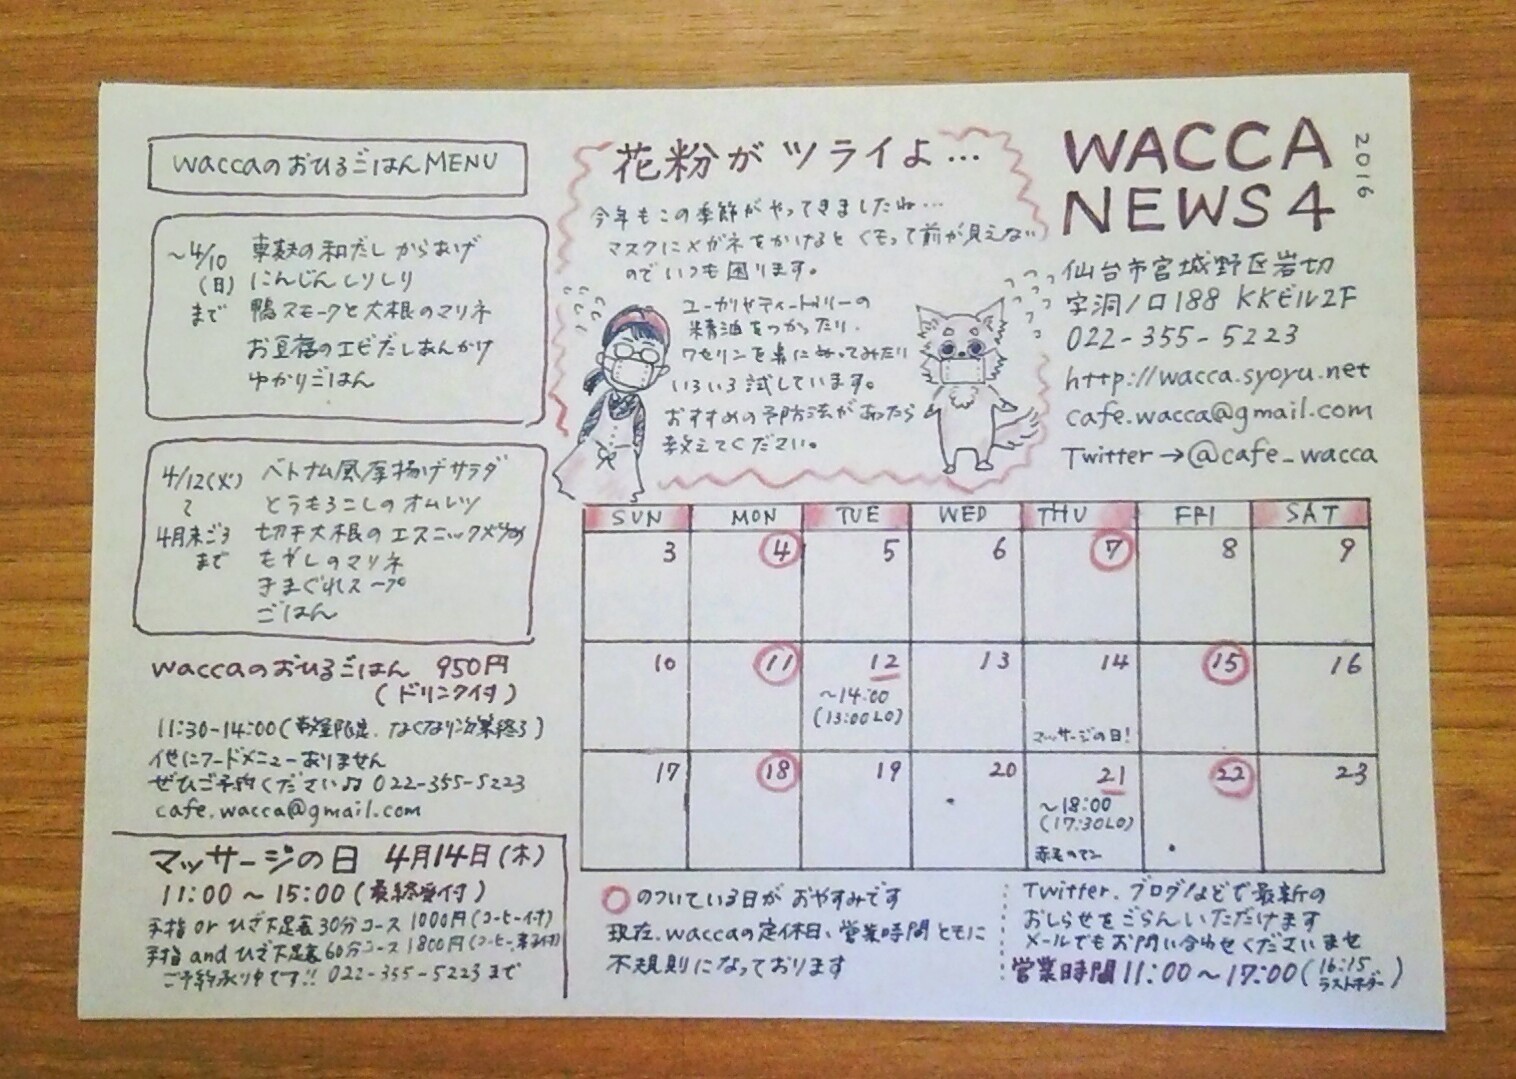 waccaのおひるごはんMENU
~4/10
(日)
まで
車麸の和だしからあげ
にんじんしりしり
鴨スモークと大根のマリネ
お豆腐のエビだしあんかけ
ゆかりごはん
4/12(火)
~
4月末ごろ
まで
ベトナム風厚揚げサラダ
とうもろこしのオムレツ
切干大根のエスニック炒め
もやしのマリネ
きまぐれスープ
ごはん
waccaのおひるごはん 950円
(ドリンク付)
11:30-14:00(数量限定、なくなり次第終了)
他にフードメニューありません
ぜひご予約ください♫ 022-355-5223
cafe.wacca@gmail.com
マッサージの日 4月14日(木)
11:00~15:00(最終受付)
手指 or ひざ下足裏30分コース 1000円(コーヒー付)
手指 and ひざ下足裏60分コース 1800円(コーヒー、菓子付)
ご予約承り中です!! 022-355-5223まで
花粉がツライよ…
今年もこの季節がやってきましたね…
マスクにメガネをかけるとくもって前が見えない
のでいつも困ります。
ユーカリやティートゥリーの
精油をつかったり、
ワセリンを鼻にぬってみたり
いろいろ試しています。
おすすめの予防法があったら
教えてください。
WACCA
NEWS 4
2016
仙台市宮城野区岩切
字洞ノ口188 KKビル2F
022-355-5223
http://wacca.syoyu.net
cafe.wacca@gmail.com
Twitter→@cafe_wacca
SUN MON TUE WED THU FRI SAT
3 4 5 6 7 8 9
10 11 12 13 14 15 16
~14:00
(13:00LO)
マッサージの日!
17 18 19 20 21 22 23
~18:00
(17:30LO)
○のついている日がおやすみです
現在、waccaの定休日、営業時間ともに
不規則になっております
Twitter、ブログなどで最新の
おしらせをごらんいただけます
メールでもお問い合わせくださいませ
営業時間11:00~17:00(16:15
ラストオーダー)